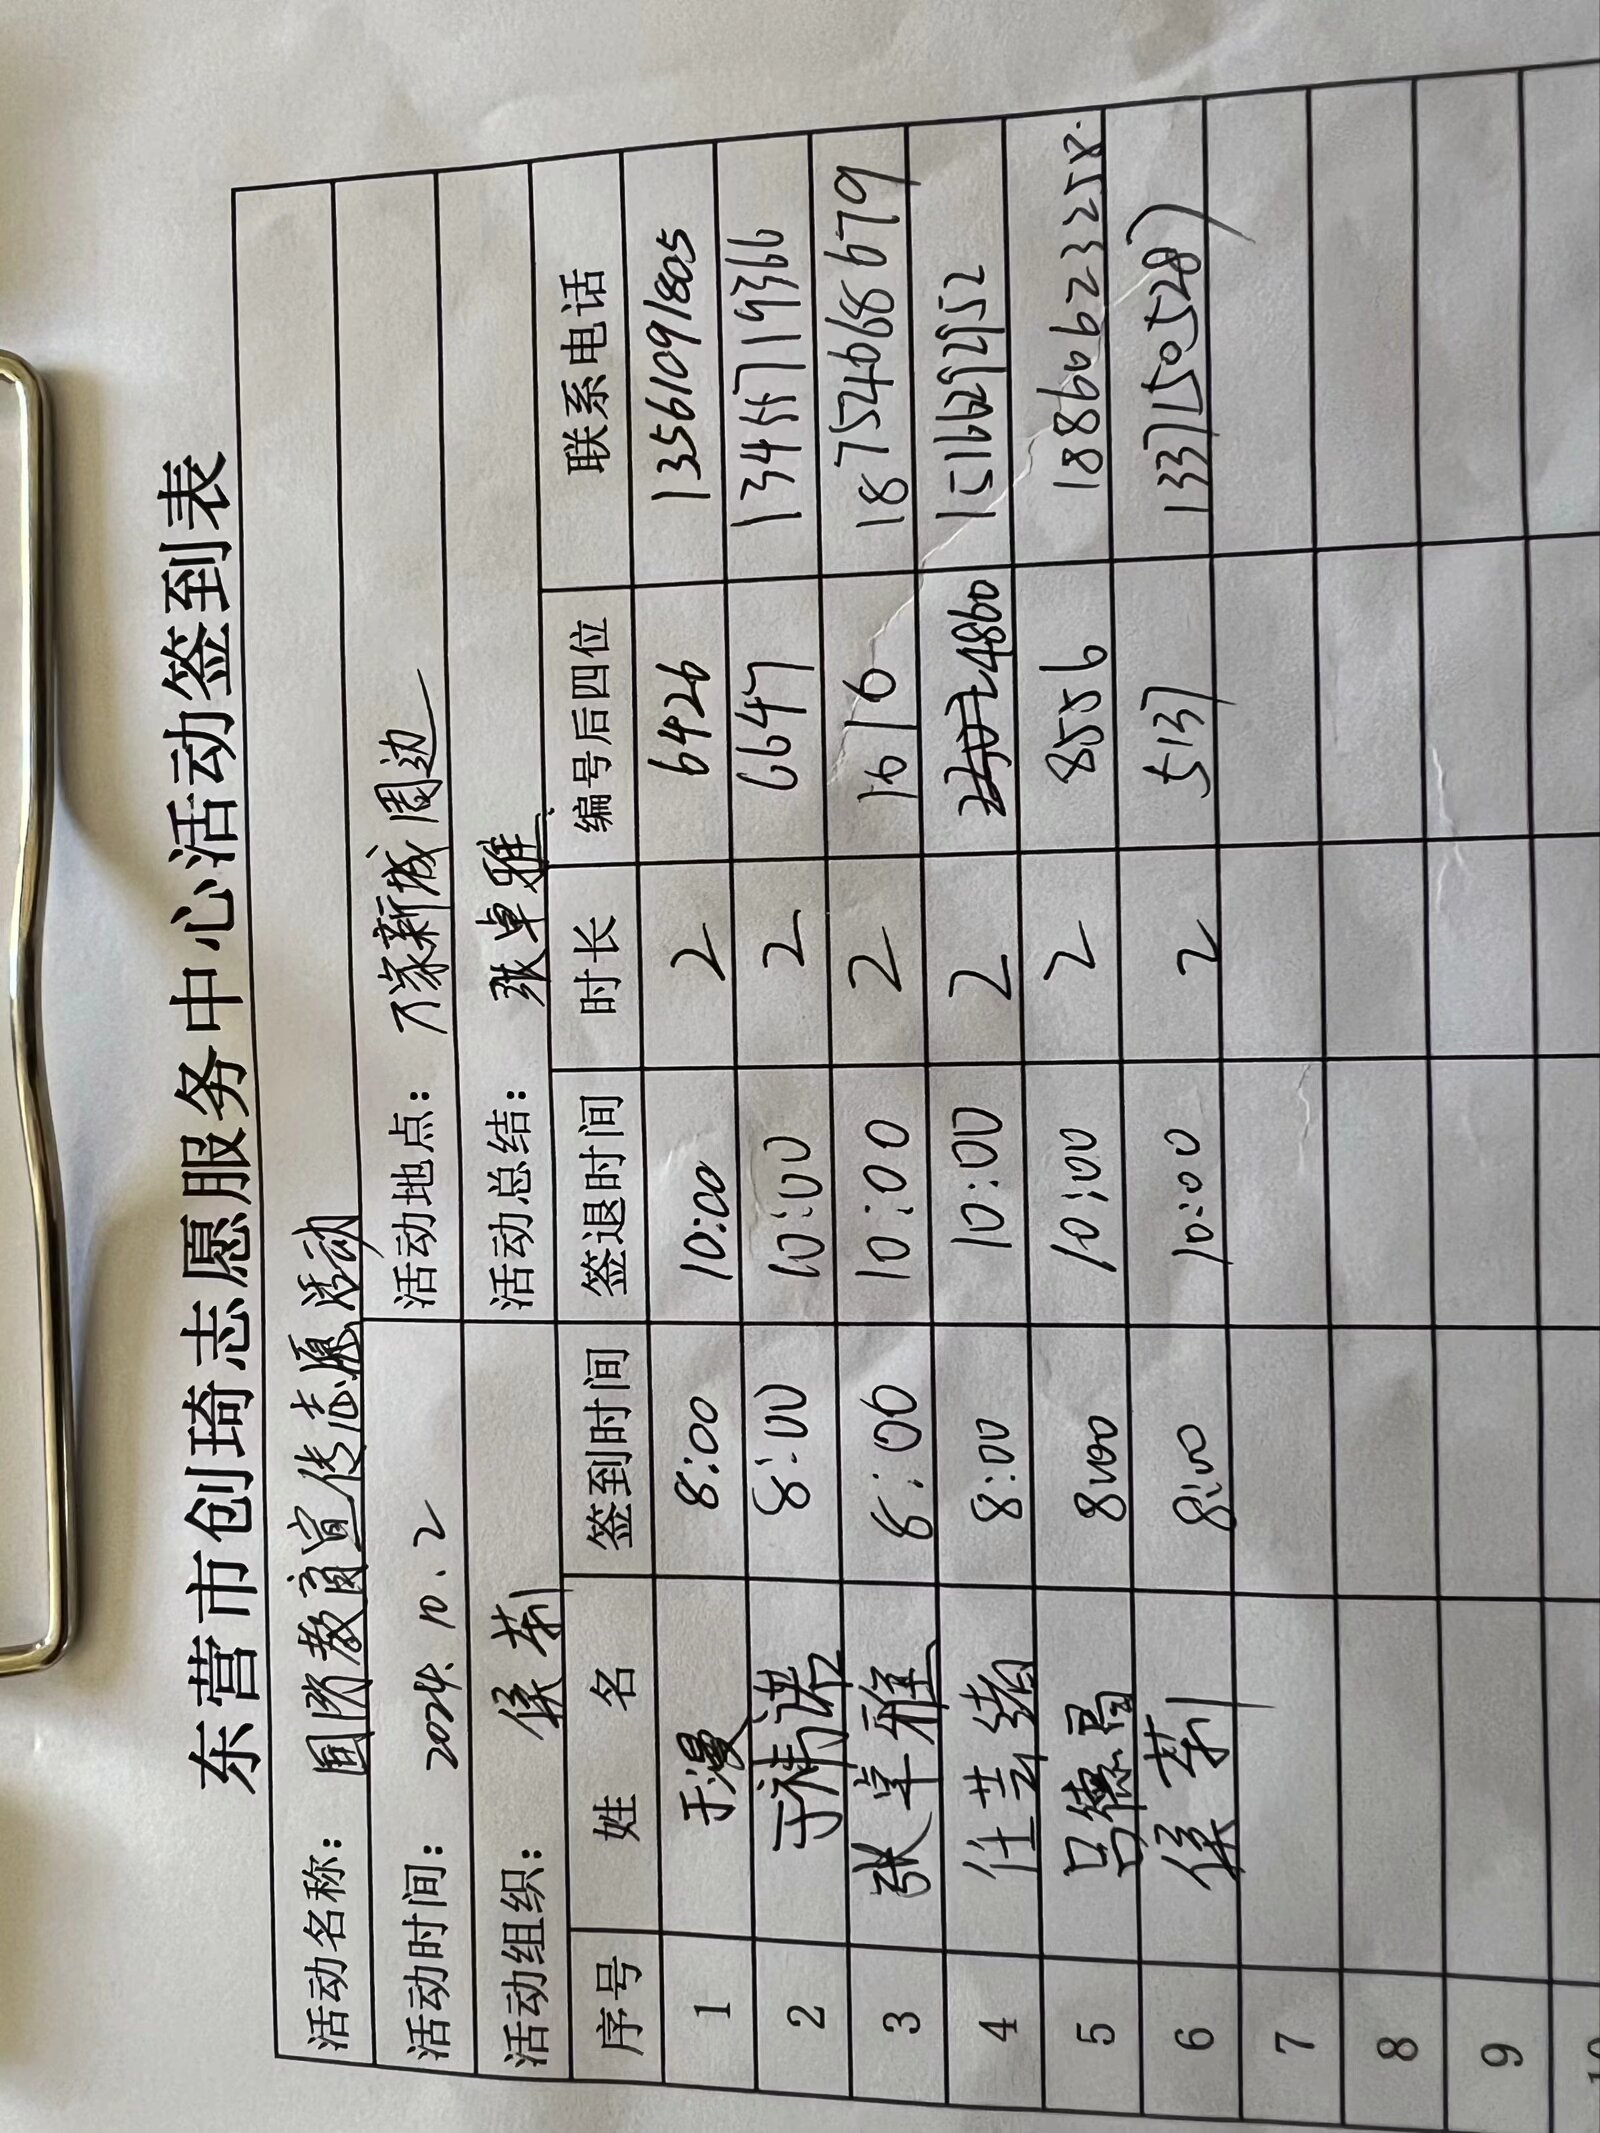 东营市创琦志愿服务中心活动签到表
活动名称： 国防教育宣传志愿活动
活动时间： 2024.10.2 活动地点： 万家新城周边
活动组织： 侯莉 活动总结： 张卓雅
序号 姓名 签到时间 签退时间 时长 编号后四位 联系电话
1 于漫 8:00 10:00 2 6426 13561091805
2 于祎诺 8:00 10:00 2 6647 13455719366
3 张卓雅 8:00 10:00 2 1616 18754668679
4 任芸 8:00 10:00 2 4860
5 吕德 8:00 10:00 2 8556 18860623258
6 侯莉 8:00 10:00 2 5137 13371505287
7
8
9
10